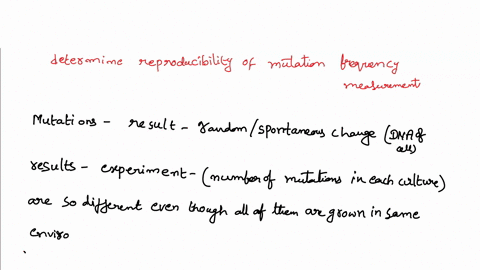 determine reproducibility of mutation frequency
measurement
Mutations - result - random/spontaneous change (DNA of
cell)
results - experiment - (number of mutations in each culture)
are so different even though all of them are grown in same
enviro